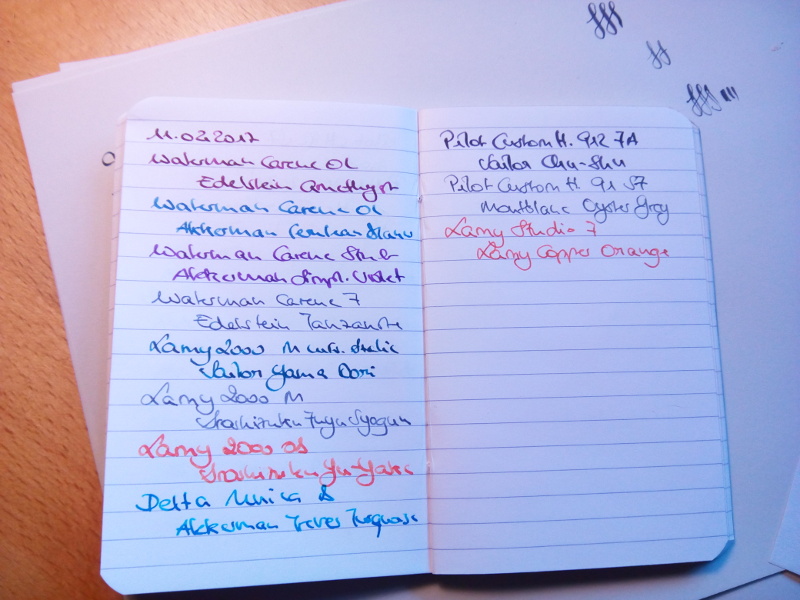 11.02.2017
Waterman Carene OL
Edelstein Amethyst
Waterman Carene OL
Akkerman
Waterman Carene Stub
Akkerman Simpl. Violet
Waterman Carene F
Edelstein Tanzanite
Lamy 2000 M curs. Italic
Sailor Yama Dori
Lamy 2000 M
Iroshizuku Fuyu Syogun
Lamy 2000 OB
Iroshizuku Yu-Yake
Delta Unica B
Akkerman Treves Turquoise
Pilot Custom H. 912 FA
Sailor Chu-Shu
Pilot Custom H. 91 SF
Montblanc Oyster Grey
Lamy Studio F
Lamy Copper Orange